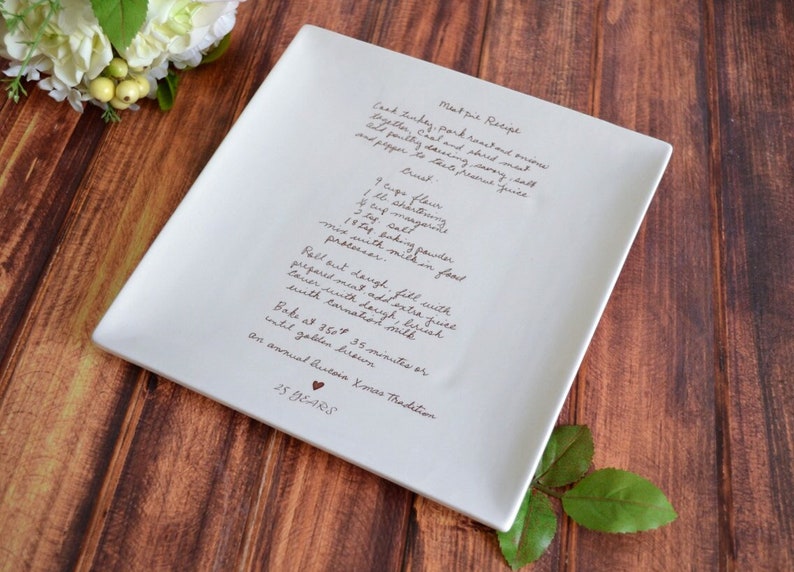 Meat pie Recipe
Cook turkey, pork roast and onions
together, cool and shred meat
add poultry dressing, savory, salt
and pepper to taste, reserve juice
Crust:
9 cups flour
1 lb. shortening
cup margarine
2 tsp. salt
18 tsp. baking powder
mix with milk in food
processor.
Roll out dough, fill with
prepared meat add extra juice
cover with dough, brush
with carnation milk
Bake at 350°F 35 minutes or
until golden brown
an annual Xmas Tradition
25 YEARS